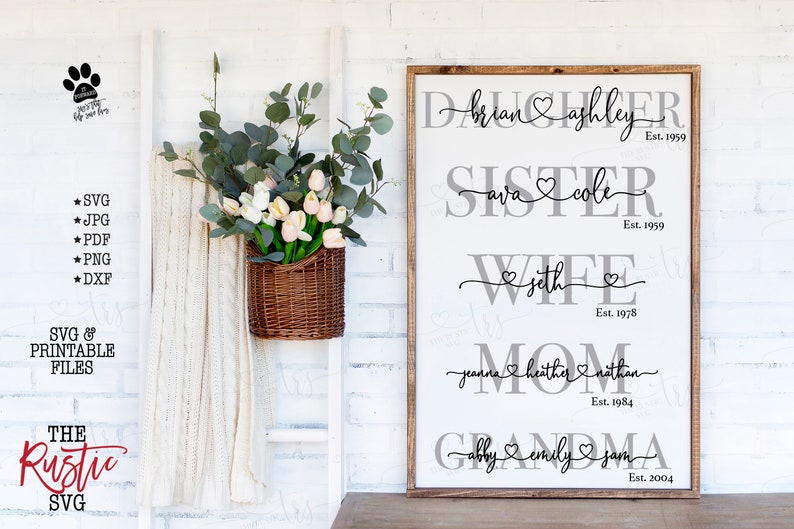 IT
FORWARD
paws that
help save lives
SVG
JPG
PDF
PNG
DXF
SVG &
PRINTABLE
FILES
THE
Rustic
SVG
DAUGHTER
brian ashley
Est. 1959
SISTER
ava cole
Est. 1959
WIFE
seth
Est. 1978
MOM
jeanna heather nathan
Est. 1984
GRANDMA
abby emily sam
Est. 2004